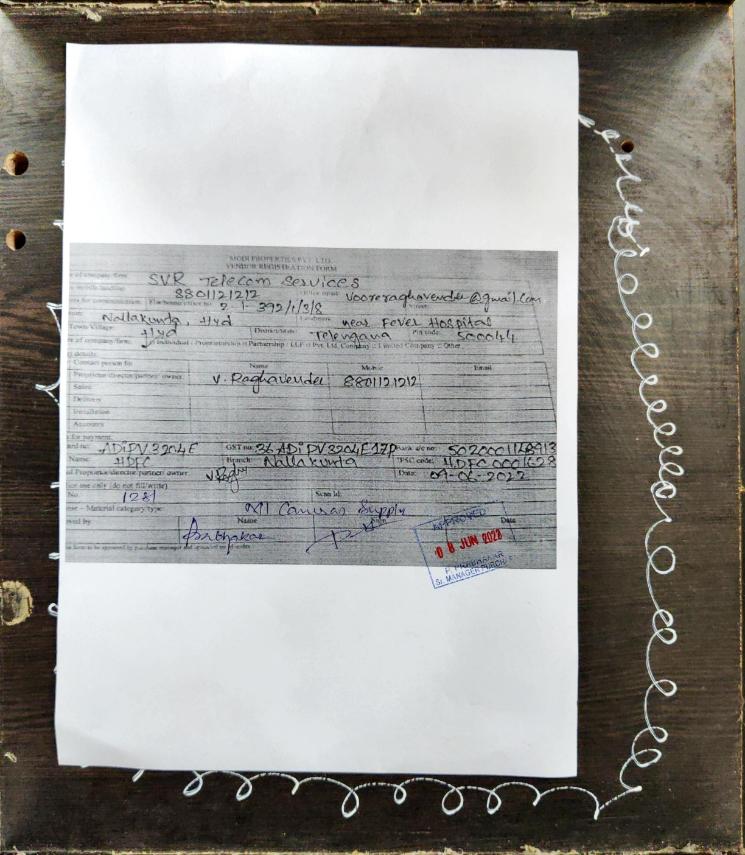 MODI PROPERTIES PVT. LTD.
VENDOR REGISTRATION FORM
of company/firm: SVR Telecom Services
8801121212 vooreraghavender@gmail.com
2-1-392/1/3/8
Nallakunta, Hyd Landmark: near Fever Hospital
Town/Village: Hyd District/State: Telengana Pin code: 500044
of company/firm: Individual Proprietorship Partnership LLP Pvt. Ltd. Company Limited Company Other
details:
Contact person for Name Mobile Email
Proprietor/director/partner/owner V. Raghavender 8801121212
Sales
Delivery
Installation
Accounts
for payment:
ADIPV3204E GST no: 36ADIPV3204E1ZP 50200011 48913
Name: HDFC Branch: Nallakunta IFSC code: HDFC0001628
of Proprietor/director/partner/owner Date: 04-06-2022
use only (do not fill/write)
No. 1281 Scan Id:
Material category/type: MI Cameras Supply
by Name Sign Date
Prabhakar
APPROVED
08 JUN 2022
P. PRABHAKAR
Sr. MANAGER PURCH